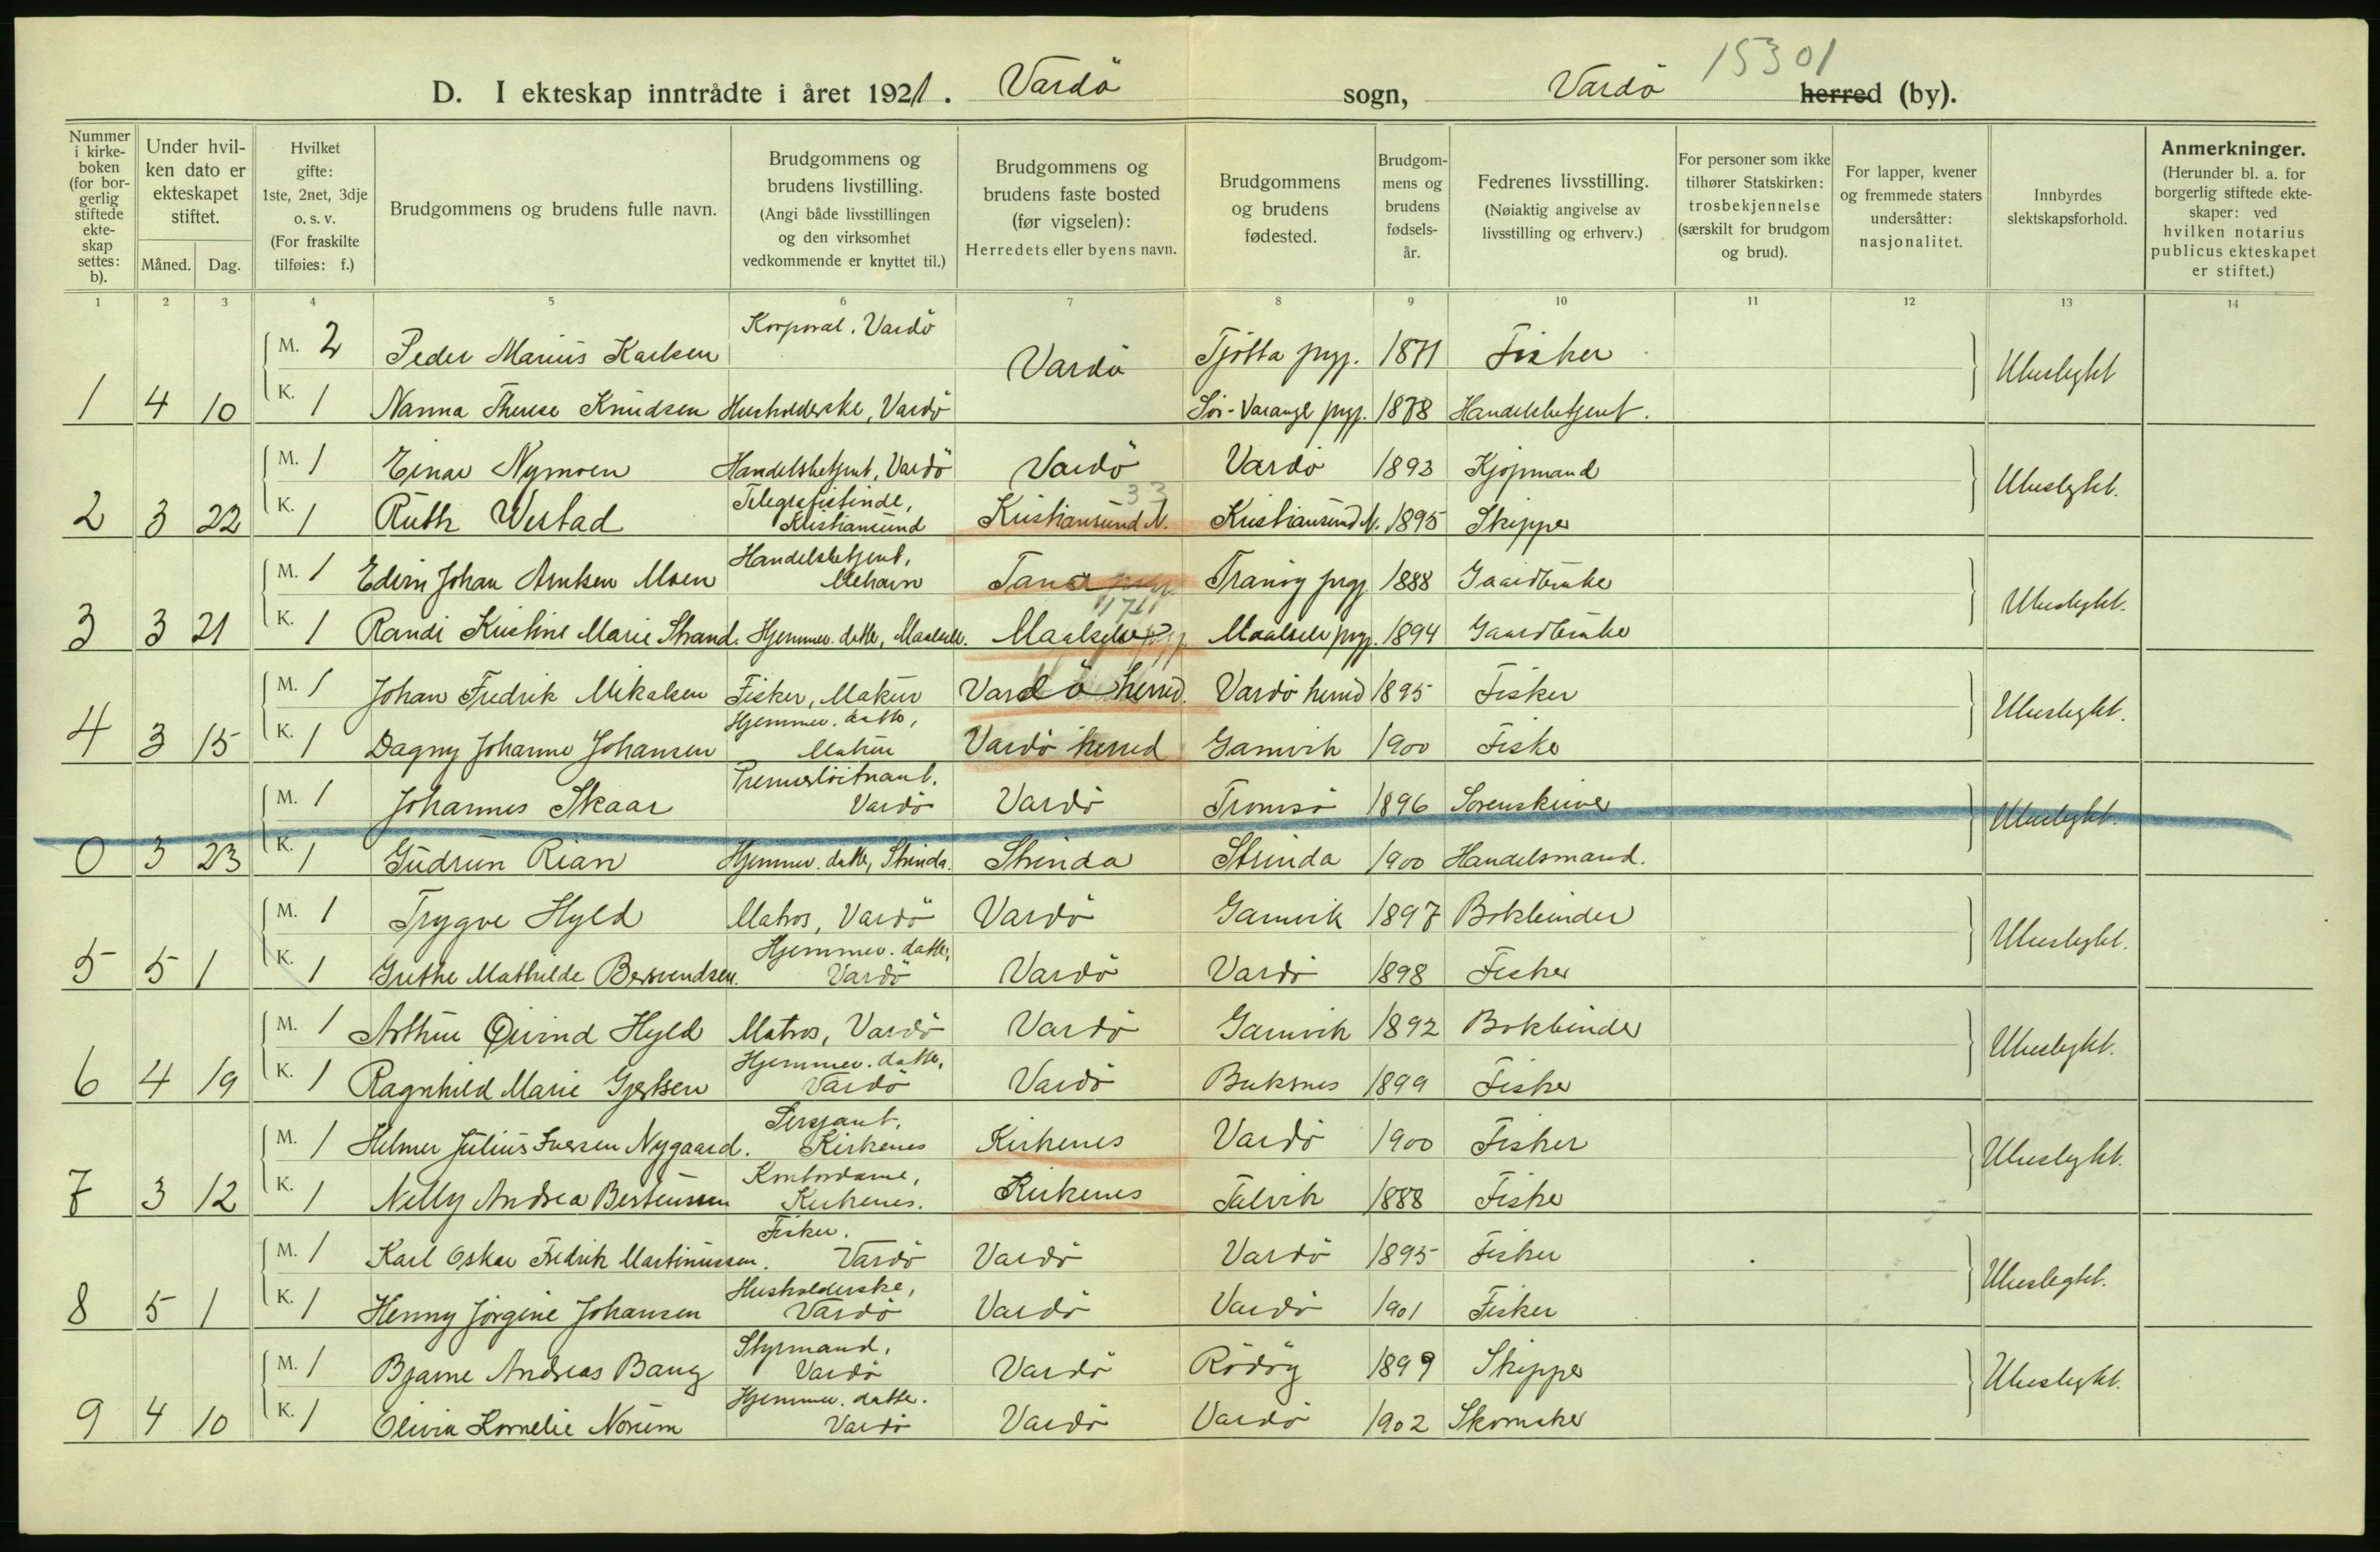 15301
D. I ekteskap inntrådte i året 1921. Vardö sogn, Vardö herred (by).
Nummer i kirke-boken (for bor-gerlig stiftede ekte-skap settes: b).
Under hvil-ken dato er ekteskapet stiftet.
Måned. Dag.
Hvilket gifte: 1ste, 2net, 3dje o. s. v. (For fraskilte tilføies: f.)
Brudgommens og brudens fulle navn.
Brudgommens og brudens livstilling. (Angi både livsstillingen og den virksomhet vedkommende er knyttet til.)
Brudgommens og brudens faste bosted (før vigselen): Herredets eller byens navn.
Brudgommens og brudens fødested.
Brudgom-mens og brudens fødsels-år.
Fedrenes livsstilling. (Nøiaktig angivelse av livsstilling og erhverv.)
For personer som ikke tilhører Statskirken: trosbekjennelse (særskilt for brudgom og brud).
For lapper, kvener og fremmede staters undersåtter: nasjonalitet.
Innbyrdes slektskapsforhold.
Anmerkninger. (Herunder bl. a. for borgerlig stiftede ekte-skaper: ved hvilken notarius publicus ekteskapet er stiftet.)
1 2 3 4 5 6 7 8 9 10 11 12 13 14
M. 2 Peder Marius Karlsen Korporal. Vardö Vardö Tjötta prgj. 1871 Fisker Ubeslegtet
1 4 10 K. 1 Nanna Therese Knudsen Husholderske, Vardö Sör-Varanger prgj. 1878 Handelsbetjent.
M. 1 Einar Nymoen Handelsbetjent, Vardö Vardö Vardö 1893 Kjöpmand Ubeslegtet.
33
2 3 22 K. 1 Ruth Westad Telegrafistinde, Kristiansund Kristiansund N. Kristiansund N. 1895 Skipper
M. 1 Edvin Johan Arntsen Moen Handelsbetjent, Mehavn Tana prgj. Tranöy prgj. 1888 Gaardbruker Ubeslegtet.
3 3 21 K. 1 Randi Kristine Marie Strand. Hjemmev. datter, Maalselv. Maalselv prgj. Maalselv prgj. 1894 Gaardbruker
M. 1 Johan Fredrik Mikalsen Fisker, Makur Vardö herred. Vardö herred 1895 Fisker Ubeslegtet.
4 3 15 K. 1 Dagny Johanne Johansen Hjemmev. datter, Makur Vardö herred Gamvik 1900 Fisker
M. 1 Johannes Skaar Premierlöitnant. Vardö Vardö Tromsö 1896 Sorenskriver Ubeslegtet.
0 3 23 K. 1 Gudrun Rian Hjemmev. datter, Strinda. Strinda Strinda 1900 Handelsmand.
M. 1 Trygve Hyld Matros, Vardö Vardö Gamvik 1897 Bokbinder Ubeslegtet.
5 5 1 K. 1 Grethe Mathilde Bersvendsen. Hjemmev. datter, Vardö Vardö Vardö 1898 Fisker
M. 1 Arthur Öivind Hyld Matros, Vardö Vardö Gamvik 1892 Bokbinder Ubeslegtet.
6 4 19 K. 1 Ragnhild Marie Gjertsen Hjemmev. datter, Vardö Vardö Buksnes 1899 Fisker
M. 1 Helmer Julius Iversen Nygaard. Sersjant, Kirkenes Kirkenes Vardö 1900 Fisker Ubeslegtet.
7 3 12 K. 1 Nelly Andrea Berteussen Kontordame, Kirkenes. Kirkenes Talvik 1888 Fisker
M. 1 Karl Oskar Fredrik Martinussen. Fisker. Vardö Vardö Vardö 1895 Fisker Ubeslegtet.
8 5 1 K. 1 Henny Jörgine Johansen Husholderske, Vardö Vardö Vardö 1901 Fisker
M. 1 Bjarne Andreas Bang Styrmand, Vardö Vardö Rödöy 1899 Skipper Ubeslegtet.
9 4 10 K. 1 Olivia Kornelie Norum Hjemmev. datter. Vardö Vardö Vardö 1902 Skomaker